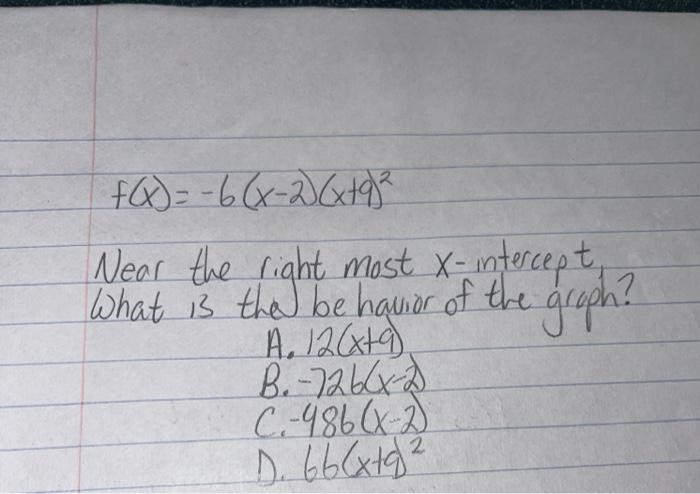 f(x) = -6(x-2)(x+9)²
Near the right most x-intercept,
What is the behavior of the graph?
A. 12(x+9)
B. -726(x-2)
C. -486(x-2)
D. 66(x+9)²